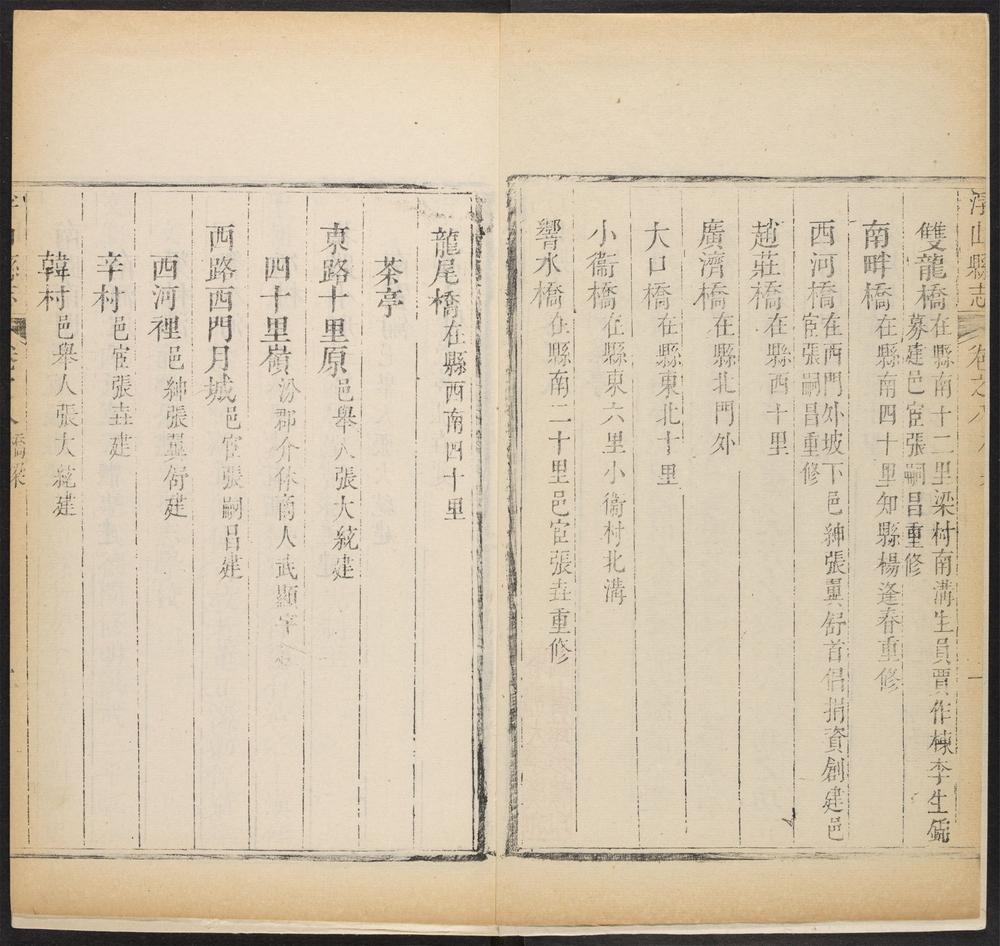 浮山縣志 卷之八
雙龍橋在縣南十二里梁村南溝生員賈作棟李生
募建邑宦張嗣昌重修
南畔橋在縣南四十里知縣楊逢春重修
西河橋在西門外坡下邑紳張翼舒首倡捐資創建邑
宦張嗣昌重修
趙莊橋在縣西十里
廣濟橋在縣北門外
大口橋在縣東北十里
小衞橋在縣東六里小衞村北溝
響水橋在縣南二十里邑宦張垚重修
龍尾橋在縣西南四十里
茶亭
東路十里原邑舉人張大統建
四十里嶺汾郡介休商人武顯
西路西門月城邑宦張嗣昌建
西河裡邑紳張翼舒建
辛村邑宦張垚建
韓村邑舉人張大統建
橋梁